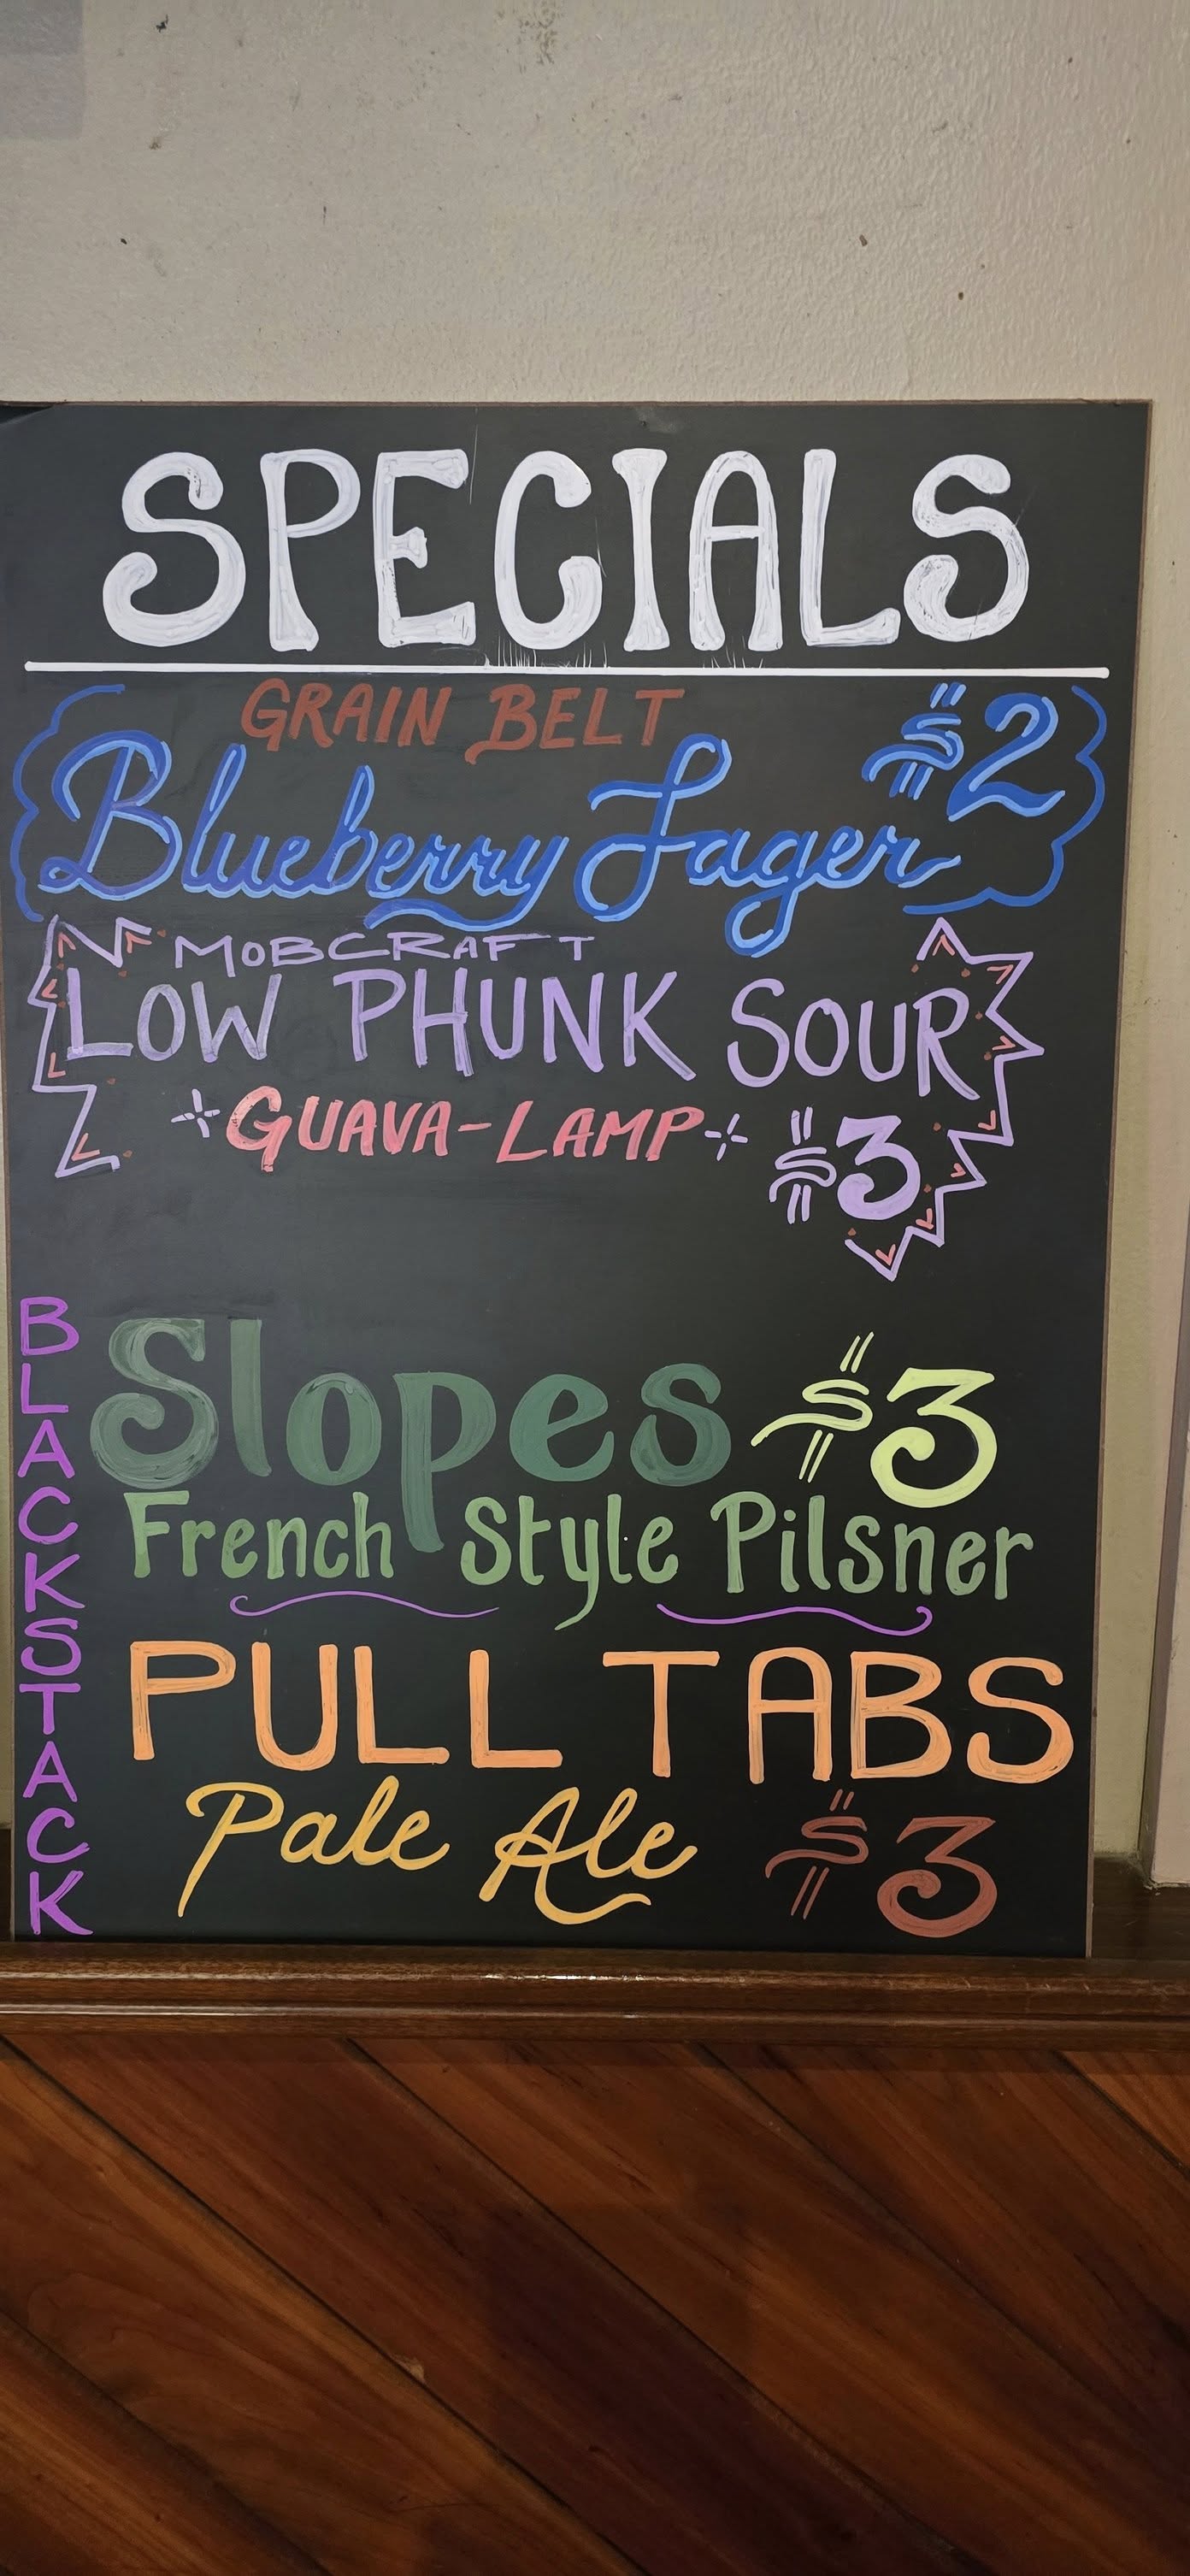 SPECIALS
GRAIN BELT
Blueberry Lager $2
MOBCRAFT
LOW PHUNK SOUR
GUAVA-LAMP $3
BLACKSTACK
Slopes $3
French Style Pilsner
PULL TABS
Pale Ale $3